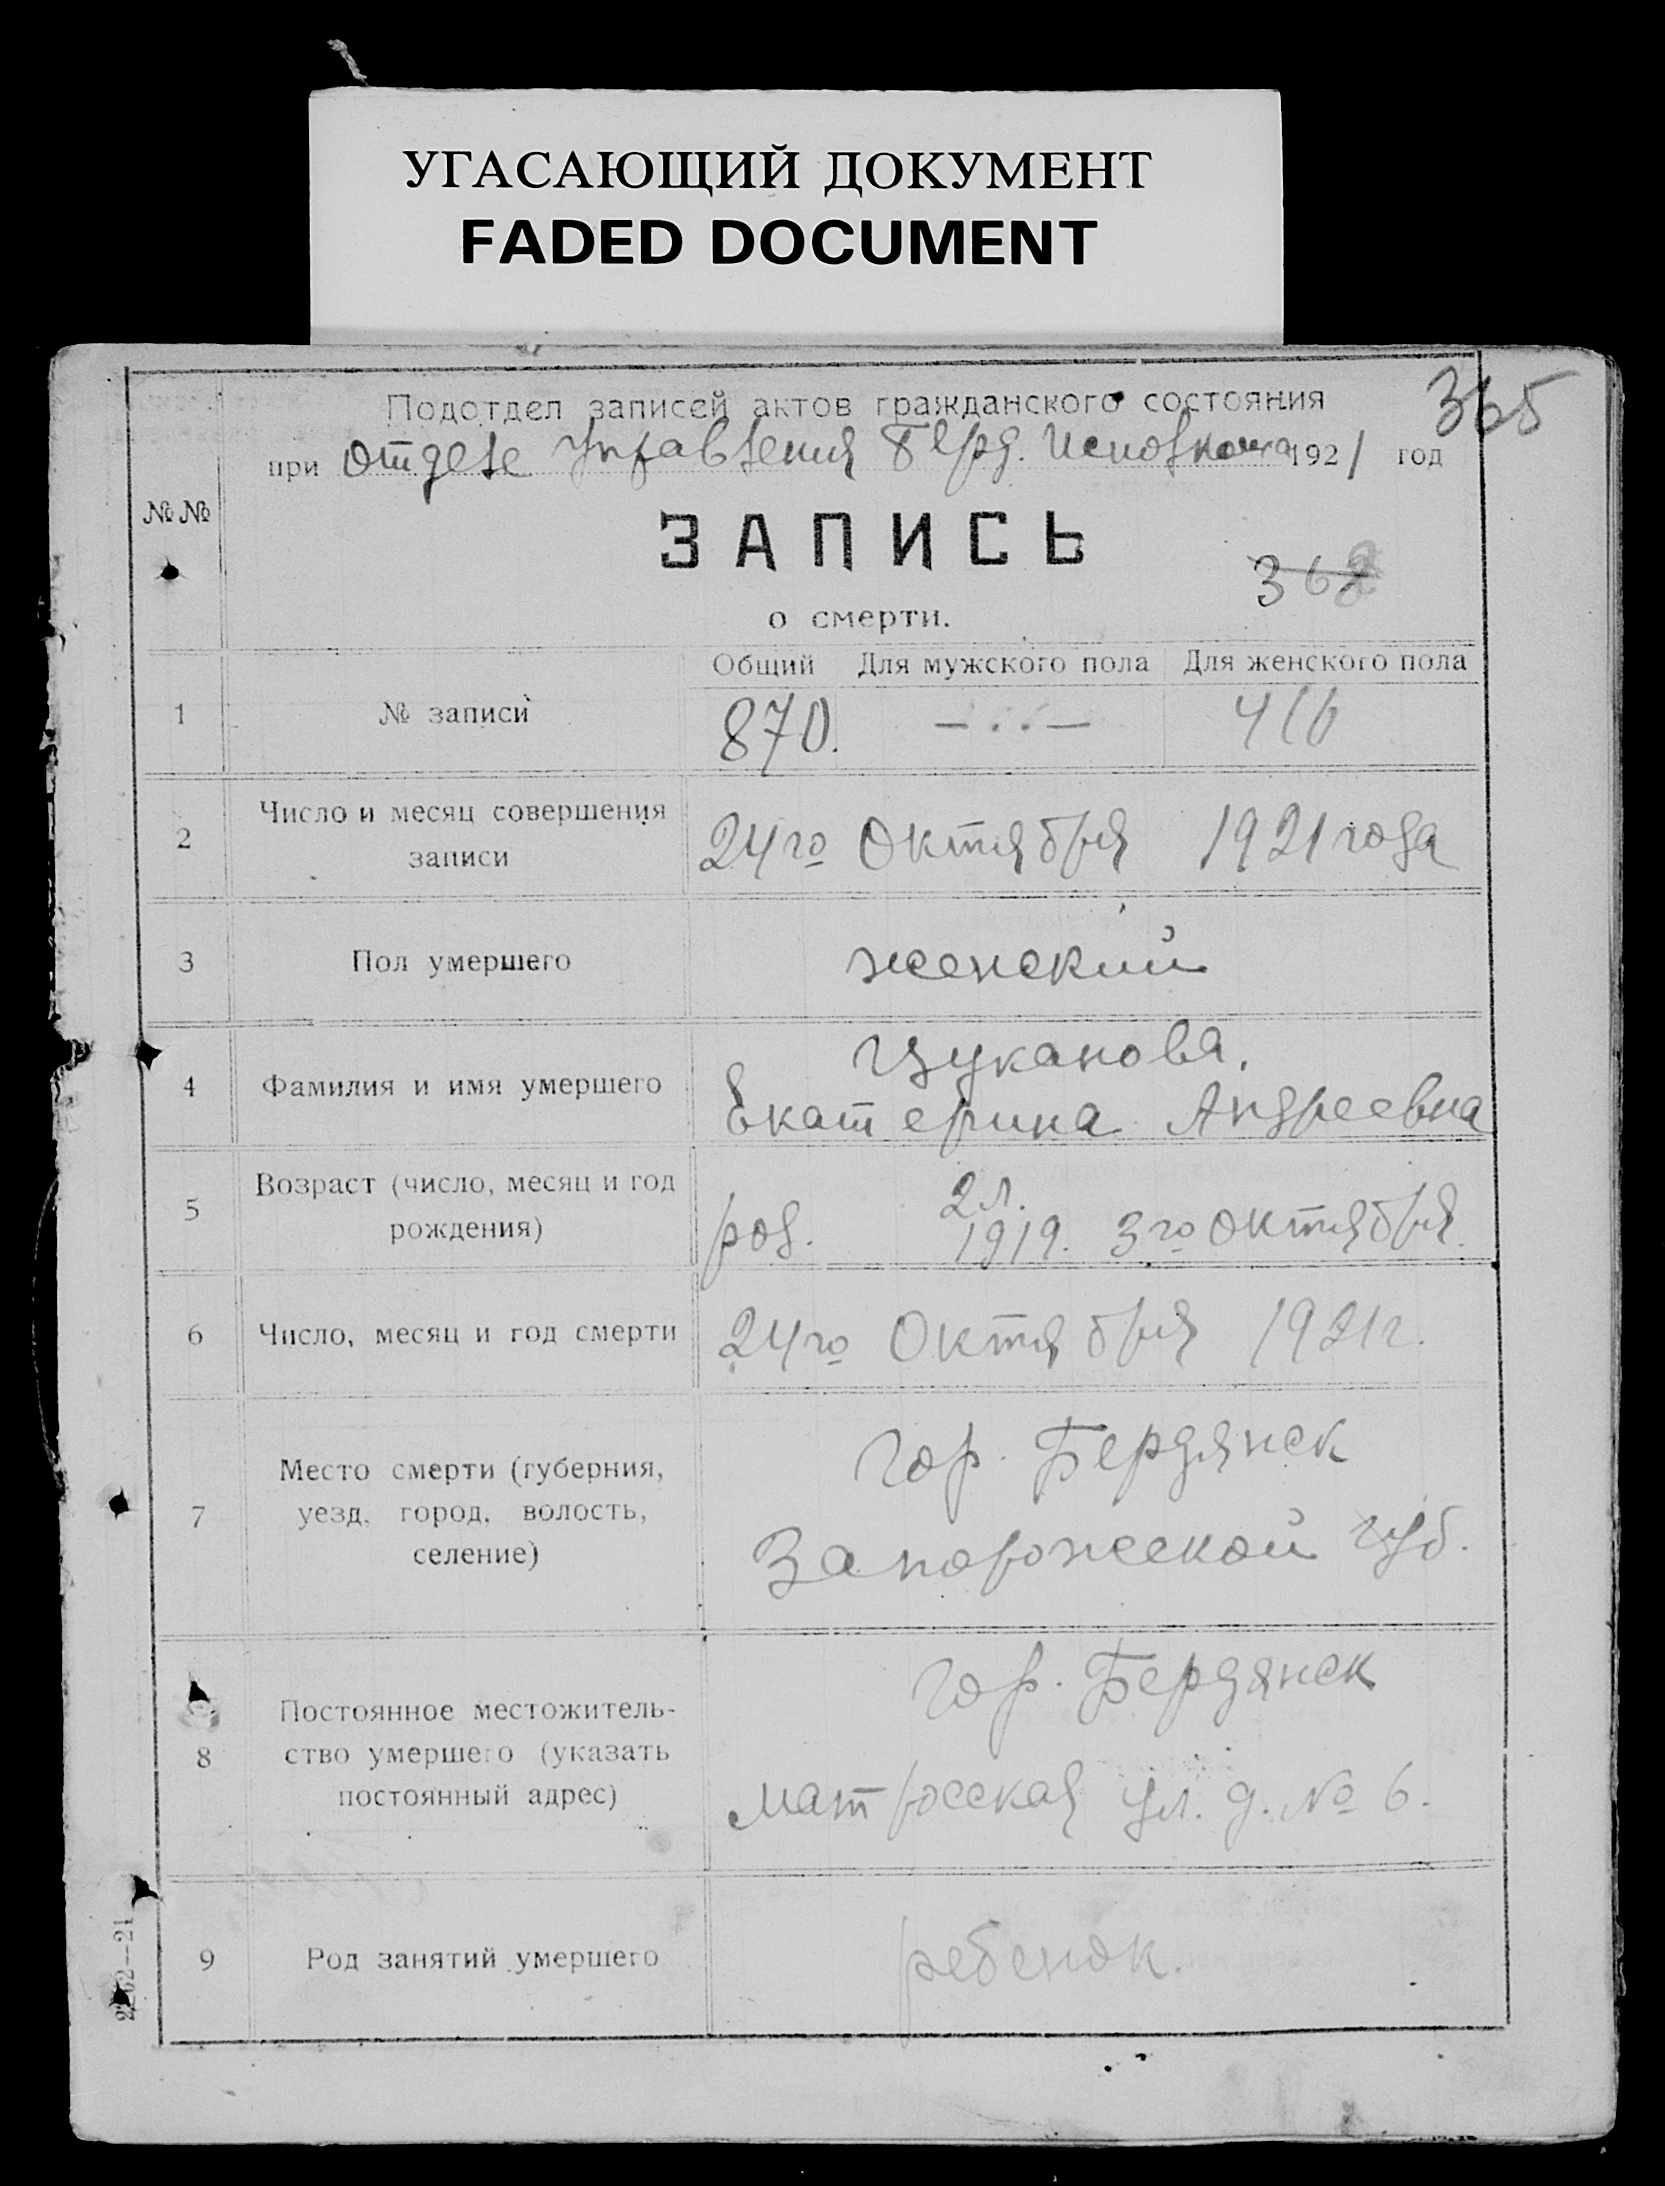 УГАСАЮЩИЙ ДОКУМЕНТ
FADED DOCUMENT
365
Подотдел записей актов гражданского состояния
при отделе Управления Берд. Исполкома 1921 год
№ №
ЗАПИСЬ
368
о смерти.
Общий Для мужского пола Для женского пола
1 № записи 870. — . . . — 416
2 Число и месяц совершения
записи
24го Октября 1921 года
3 Пол умершего женский
4 Фамилия и имя умершего
Цуканова,
Екатерина Андреевна
5 Возраст (число, месяц и год
рождения)
2 л.
род. 1919. 3го октября.
6 Число, месяц и год смерти 24го Октября 1921г.
7 Место смерти (губерния,
уезд, город, волость,
селение)
гор. Бердянск
Запорожской губ.
8 Постоянное местожитель-
ство умершего (указать
постоянный адрес)
гор. Бердянск
Матросская ул. д. № 6.
9 Род занятий умершего ребенок.
2262—21